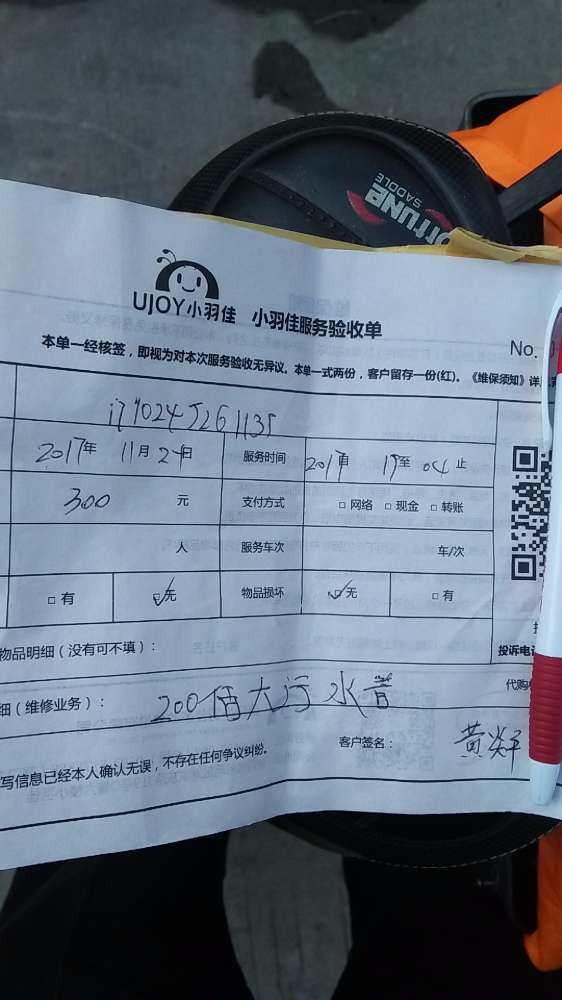 FORTUNE
SADDLE
UJOY小羽佳 小羽佳服务验收单
No.
本单一经核签,即视为对本次服务验收无异议。本单一式两份,客户留存一份(红)。《维保须知》详
2017年 11月 日 服务时间 2017 至 04 止
300 元 支付方式 □网络 □现金 □转账
人 服务车次 车/次
□有 □无 物品损坏 □无 □有
物品明细(没有可不填): 投诉电
细(维修业务): 200 大污水管 代购
写信息已经本人确认无误,不存在任何争议纠纷。 客户签名: 黄